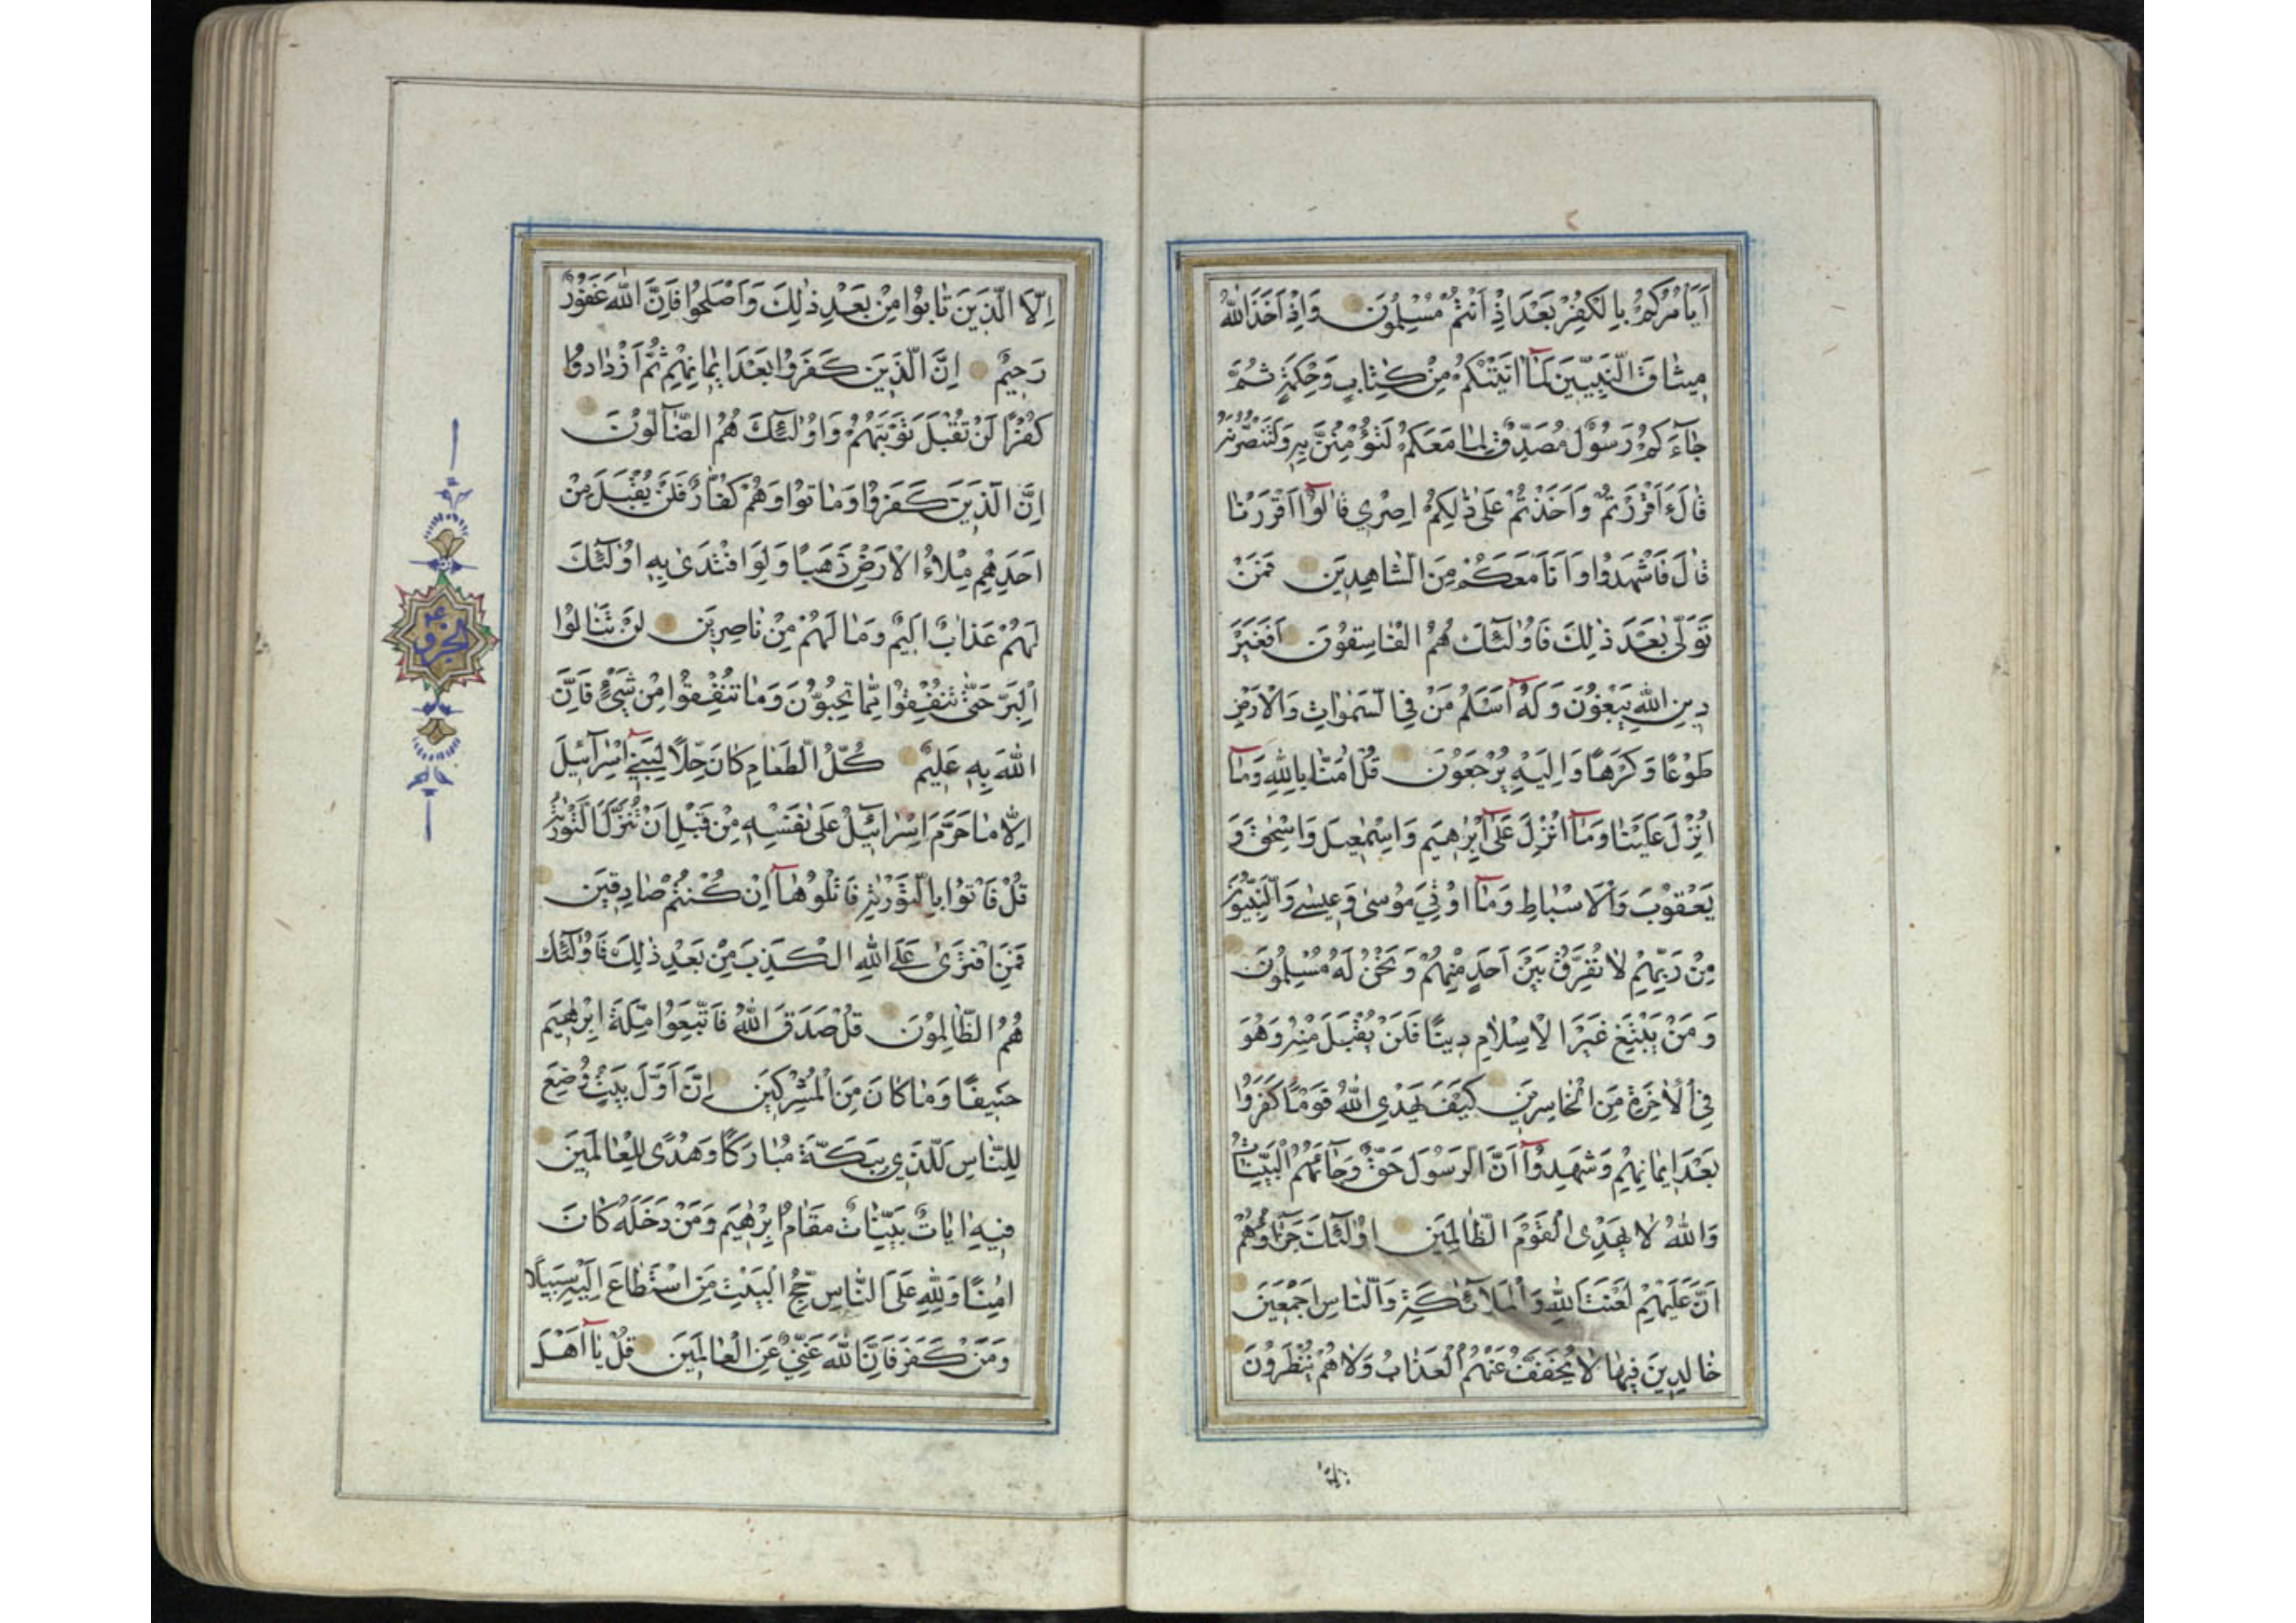 اَيَأمُرُكُمْ بِالْكُفْرِ بَعْدَ اِذْ اَنْتُمْ مُسْلِمُونَ وَاِذْ اَخَذَ اللهُ
مِيثَاقَ النَّبِيّٖينَ لَمَآ اتَيْتُكُمْ مِنْ كِتَابٍ وَحِكْمَةٍ ثُمَّ
جَآءَكُمْ رَسُولٌ مُصَدِّقٌ لِمَا مَعَكُمْ لَتُؤْمِنُنَّ بِهِ وَلَتَنْصُرُنَّهُ
قَالَ ءَاَقْرَرْتُمْ وَاَخَذْتُمْ عَلٰى ذٰلِكُمْ اِصْرِي قَالُوآ اَقْرَرْنَا
قَالَ فَاشْهَدُوا وَاَنَا مَعَكُمْ مِنَ الشَّاهِدِينَ فَمَنْ
تَوَلّٰى بَعْدَ ذٰلِكَ فَاُولٰٓئِكَ هُمُ الْفَاسِقُونَ اَفَغَيْرَ
دِينِ اللهِ يَبْغُونَ وَلَهُٓ اَسْلَمَ مَنْ فِي السَّمٰوَاتِ وَالْاَرْضِ
طَوْعًا وَكَرْهًا وَاِلَيْهِ يُرْجَعُونَ قُلْ اٰمَنَّا بِاللهِ وَمَآ
اُنْزِلَ عَلَيْنَا وَمَآ اُنْزِلَ عَلٰٓى اِبْرٰهِيمَ وَاِسْمٰعِيلَ وَاِسْحٰقَ وَ
يَعْقُوبَ وَالْاَسْبَاطِ وَمَآ اُوتِيَ مُوسٰى وَعِيسٰى وَالنَّبِيُّونَ
مِنْ رَبِّهِمْ لَا نُفَرِّقُ بَيْنَ اَحَدٍ مِنْهُمْ وَنَحْنُ لَهُ مُسْلِمُونَ
وَمَنْ يَبْتَغِ غَيْرَ الْاِسْلَامِ دِينًا فَلَنْ يُقْبَلَ مِنْهُ وَهُوَ
فِي الْاٰخِرَةِ مِنَ الْخَاسِرِينَ كَيْفَ يَهْدِي اللهُ قَوْمًا كَفَرُوا
بَعْدَ اِيمَانِهِمْ وَشَهِدُوآ اَنَّ الرَّسُولَ حَقٌّ وَجَائَهُمُ الْبَيِّنَاتُ
وَاللهُ لَا يَهْدِى الْقَوْمَ الظَّالِمِينَ اُولٰٓئِكَ جَزَآؤُهُمْ
اَنَّ عَلَيْهِمْ لَعْنَتَ اللهِ وَالْمَلَآئِكَةِ وَالنَّاسِ اَجْمَعِينَ
خَالِدِينَ فِيهَا لَا يُخَفَّفُ عَنْهُمُ الْعَذَابُ وَلَا هُمْ يُنْظَرُونَ
اِلَّا الَّذِينَ تَابُوا مِنْ بَعْدِ ذٰلِكَ وَاَصْلَحُوا فَاِنَّ اللهَ غَفُورٌ
رَحِيمٌ اِنَّ الَّذِينَ كَفَرُوا بَعْدَ اِيمَانِهِمْ ثُمَّ ازْدَادُوا
كُفْرًا لَنْ تُقْبَلَ تَوْبَتُهُمْ وَاُولٰٓئِكَ هُمُ الضَّآلُّونَ
اِنَّ الَّذِينَ كَفَرُوا وَمَاتُوا وَهُمْ كُفَّارٌ فَلَنْ يُقْبَلَ مِنْ
اَحَدِهِمْ مِلْاءُ الْاَرْضِ ذَهَبًا وَلَوِ افْتَدٰى بِهِ اُولٰٓئِكَ
لَهُمْ عَذَابٌ اَلِيمٌ وَمَا لَهُمْ مِنْ نَاصِرِينَ لَنْ تَنَالُوا
الْبِرَّ حَتّٰى تُنْفِقُوا مِمَّا تُحِبُّونَ وَمَا تُنْفِقُوا مِنْ شَيْءٍ فَاِنَّ
اللهَ بِهِ عَلِيمٌ كُلُّ الطَّعَامِ كَانَ حِلًّا لِبَنِيٓ اِسْرَآئِيلَ
اِلَّا مَا حَرَّمَ اِسْرَائِيلُ عَلٰى نَفْسِهِ مِنْ قَبْلِ اَنْ تُنَزَّلَ التَّوْرٰيةُ
قُلْ فَاْتُوا بِالتَّوْرٰيةِ فَاتْلُوهَآ اِنْ كُنْتُمْ صَادِقِينَ
فَمَنِ افْتَرٰى عَلَى اللهِ الْكَذِبَ مِنْ بَعْدِ ذٰلِكَ فَاُولٰٓئِكَ
هُمُ الظَّالِمُونَ قُلْ صَدَقَ اللهُ فَاتَّبِعُوا مِلَّةَ اِبْرٰهِيمَ
حَنِيفًا وَمَا كَانَ مِنَ الْمُشْرِكِينَ اِنَّ اَوَّلَ بَيْتٍ وُضِعَ
لِلنَّاسِ لَلَّذِي بِبَكَّةَ مُبَارَكًا وَهُدًى لِلْعَالَمِينَ
فِيهِ اٰيَاتٌ بَيِّنَاتٌ مَقَامُ اِبْرٰهِيمَ وَمَنْ دَخَلَهُ كَانَ
اٰمِنًا وَلِلّٰهِ عَلَى النَّاسِ حِجُّ الْبَيْتِ مَنِ اسْتَطَاعَ اِلَيْهِ سَبِيلًا
وَمَنْ كَفَرَ فَاِنَّ اللهَ غَنِيٌّ عَنِ الْعَالَمِينَ قُلْ يَآ اَهْلَ
الجزو